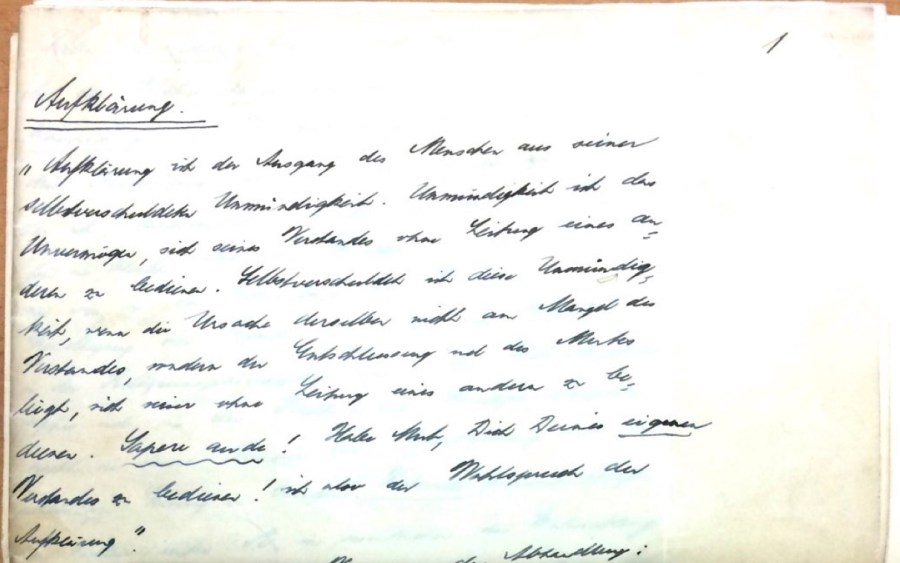 1
Aufklärung.
„Aufklärung ist der Ausgang des Menschen aus seiner
selbstverschuldeten Unmündigkeit. Unmündigkeit ist das
Unvermögen, sich seines Verstandes ohne Leitung eines an-
deren zu bedienen. Selbstverschuldet ist diese Unmündig-
keit, wenn die Ursache derselben nicht am Mangel des
Verstandes, sondern der Entschliessung und des Mutes
liegt, sich seiner ohne Leitung eines andern zu be-
dienen. Sapere aude! Habe Mut, Dich Deines eigenen
Verstandes zu bedienen! ist also der Wahlspruch der
Aufklärung".
der Abhandlung: